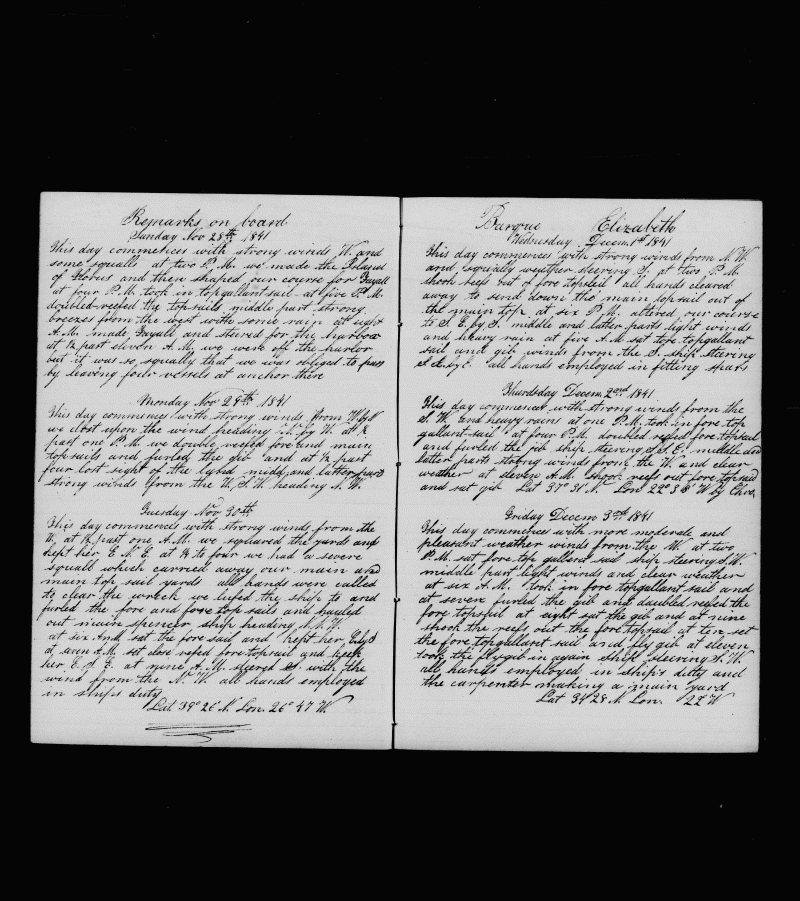 Remarks on board
Sunday Nov 28th 1841
This day commences with strong winds W. and
some squally at two P. M. we made the Island
of Flores and then shaped our course for Fayall
at four P. M. took in topgallantsail at five P. M.
doubled reefed the topsails middle part strong
breezes from the west with some rain at eight
A. M. made Fayall and steered for the harbor
at ½ past eleven A. M. we were off the harbor
but it was so squally that we was obliged to pass
by leaving four vessels at anchor there
Monday Nov 29th 1841
This day commences with strong winds from
we clost upon the wind heading by W. At ½
past one P. M. we double reefed fore and main
topsails and furled the gib and at ½ past
four lost sight of the midd and latter parts
strong winds from the W. S. W. heading N. W.
Tuesday Nov 30th
This day commences with strong winds from the
W. at ½ past one A. M. we squared the yards and
kept her E N E at to four we had a severe
squall which carried away our main and
main top sail yards all hands were called
to clear the wreck we lufed the ship to and
furled the fore and fore top sails and hauled
out main spencer ship heading N. N. W.
at six A.M. set the fore sail and kept her E by S
at seven A.M. set close refed foretopsail and keep
her E. S. E. at nine A. M. steered S. with the
wind from the N. W. all hands employed
in ships duty
Lat. 39° 26' N. Lon. 26° 47 W.
Barque Elizabeth
Wednesday Decem. 1st 1841
This day commences with strong winds from N. W.
and squally weather steering S. at two P. M.
shook reefs out of fore topsail all hands cleared
away to send down the main topsail out of
the main top at six P. M. altered our course
to S. E. by S. middle and latter parts light winds
and heavy rain at five A M sat fore topgallant
sail and gib winds from the S. ship steering
S. E. by E. all hands employed in fitting spars
Thursday Decem 2nd 1841
This day commences with strong winds from the
S. W. and heavy rains at one P. M. took in fore top
gallant-sail at four P.M. doubled refed fore topsail
and furled the gib ship steering S S. E. middle and
latter parts strong winds from the W. and clear
weather at eleven A.M. shook reefs out fore topsail
and sat gib Lat 37° 31' N. Lon 22° 38' W by Chro.
Friday Decem 3rd 1841
This day commences with more moderate and
pleasant weather winds from the W. at two
P. M. sat fore top gallant sail ship steering S. W.
middle part light winds and clear weather
at six A. M. took in fore topgallant sail and
at seven furled the gib and doubled refed the
fore topsail at eight sat the gib and at nine
shook the reefs out the fore topsail at ten set
the fore topgallant sail and fly gib at eleven
took the fly gib in again ship steering S. W.
all hands employed in ship's duty and
the carpenter making a main yard
Lat 34 28 N. Lon. 22 W